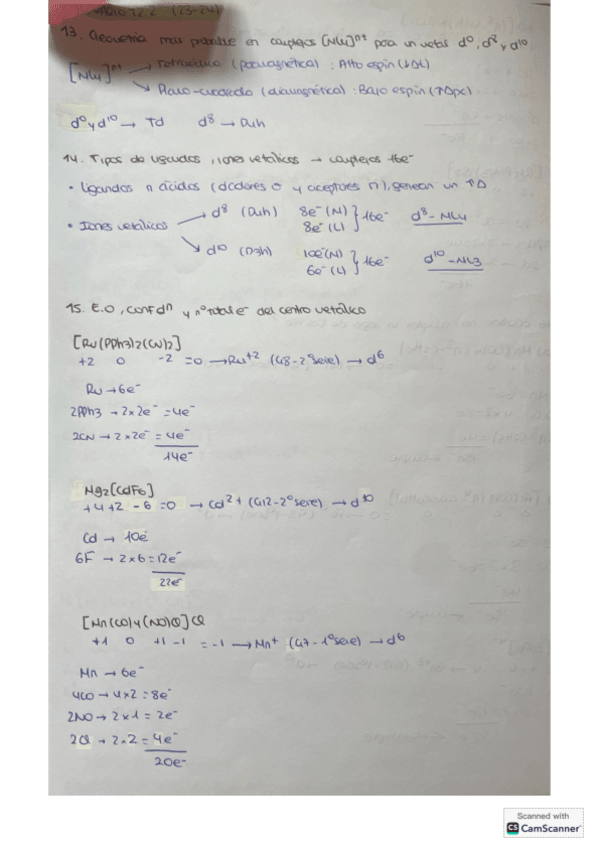 (23-24)
13. Geometría más probable en complejos [ML4]n+ para un metal d0, d8 y d10
[ML4]n+ → Tetraédrica (paramagnética) : Alto espin (↓Δt)
↘ Plano-cuadrado (diamagnética) : Bajo espin (↑Δpc)
d0 y d10 → Td d8 → D4h
14. Tipos de ligandos, iones metálicos → complejos 16e-
• Ligandos π ácidos (dadores σ y aceptores π), generan un ↑Δ
• Iones metálicos → d8 (D4h) 8e- (M) 8e- (L) } 16e- d8-ML4
↘ d10 (D3h) 10e- (M) 6e- (L) } 16e- d10-ML3
15. E.O, conf dn y nº total e- del centro metálico
[Ru(PPh3)2(CN)2]
+2 0 -2 =0 → Ru+2 (G8-2ª serie) → d6
Ru → 6e-
2PPh3 → 2x2e- = 4e-
2CN → 2x2e- = 4e-
14e-
Mg2[CdF6]
+4 +2 -6 =0 → Cd2+ (G12-2ª serie) → d10
Cd → 10e-
6F → 2x6 = 12e-
22e-
[Mn(CO)4(NO)Cl]Cl
+1 0 +1 -1 = -1 → Mn+ (G7-1ª serie) → d6
Mn → 6e-
4CO → 4x2 = 8e-
2NO → 2x1 = 2e-
2Cl → 2x2 = 4e-
20e-
Scanned with
CS CamScanner